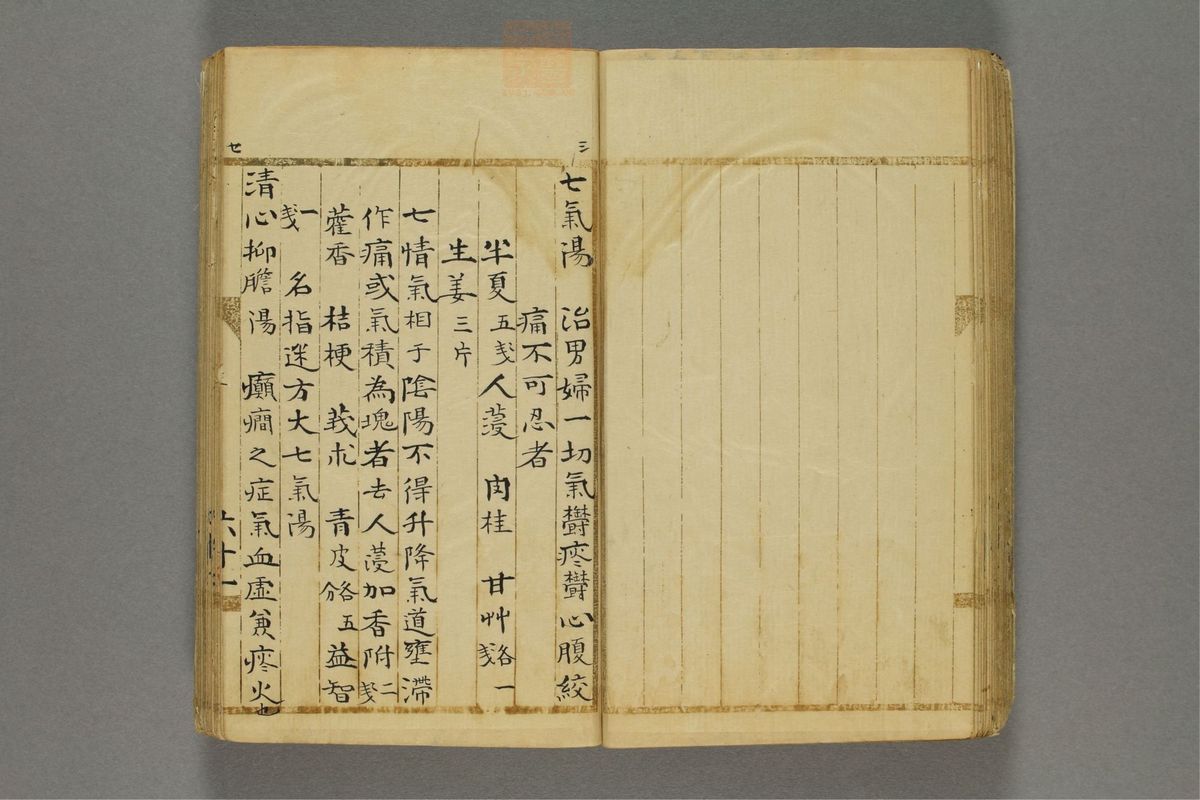 三
七氣湯 治男婦一切氣欝痰欝心腹絞
痛不可忍者
半夏五戔人蓡 肉桂 甘艸各一戔
生姜三片
七情氣相于陰陽不得升降氣道壅滯
作痛或氣積為塊者去人蓡加香附二戔
藿香 桔梗 莪朮 青皮各五分益智
一戔 名指迷方大七氣湯
清心抑膽湯 癲癎之症氣血虛兼痰火也
廿
六十一